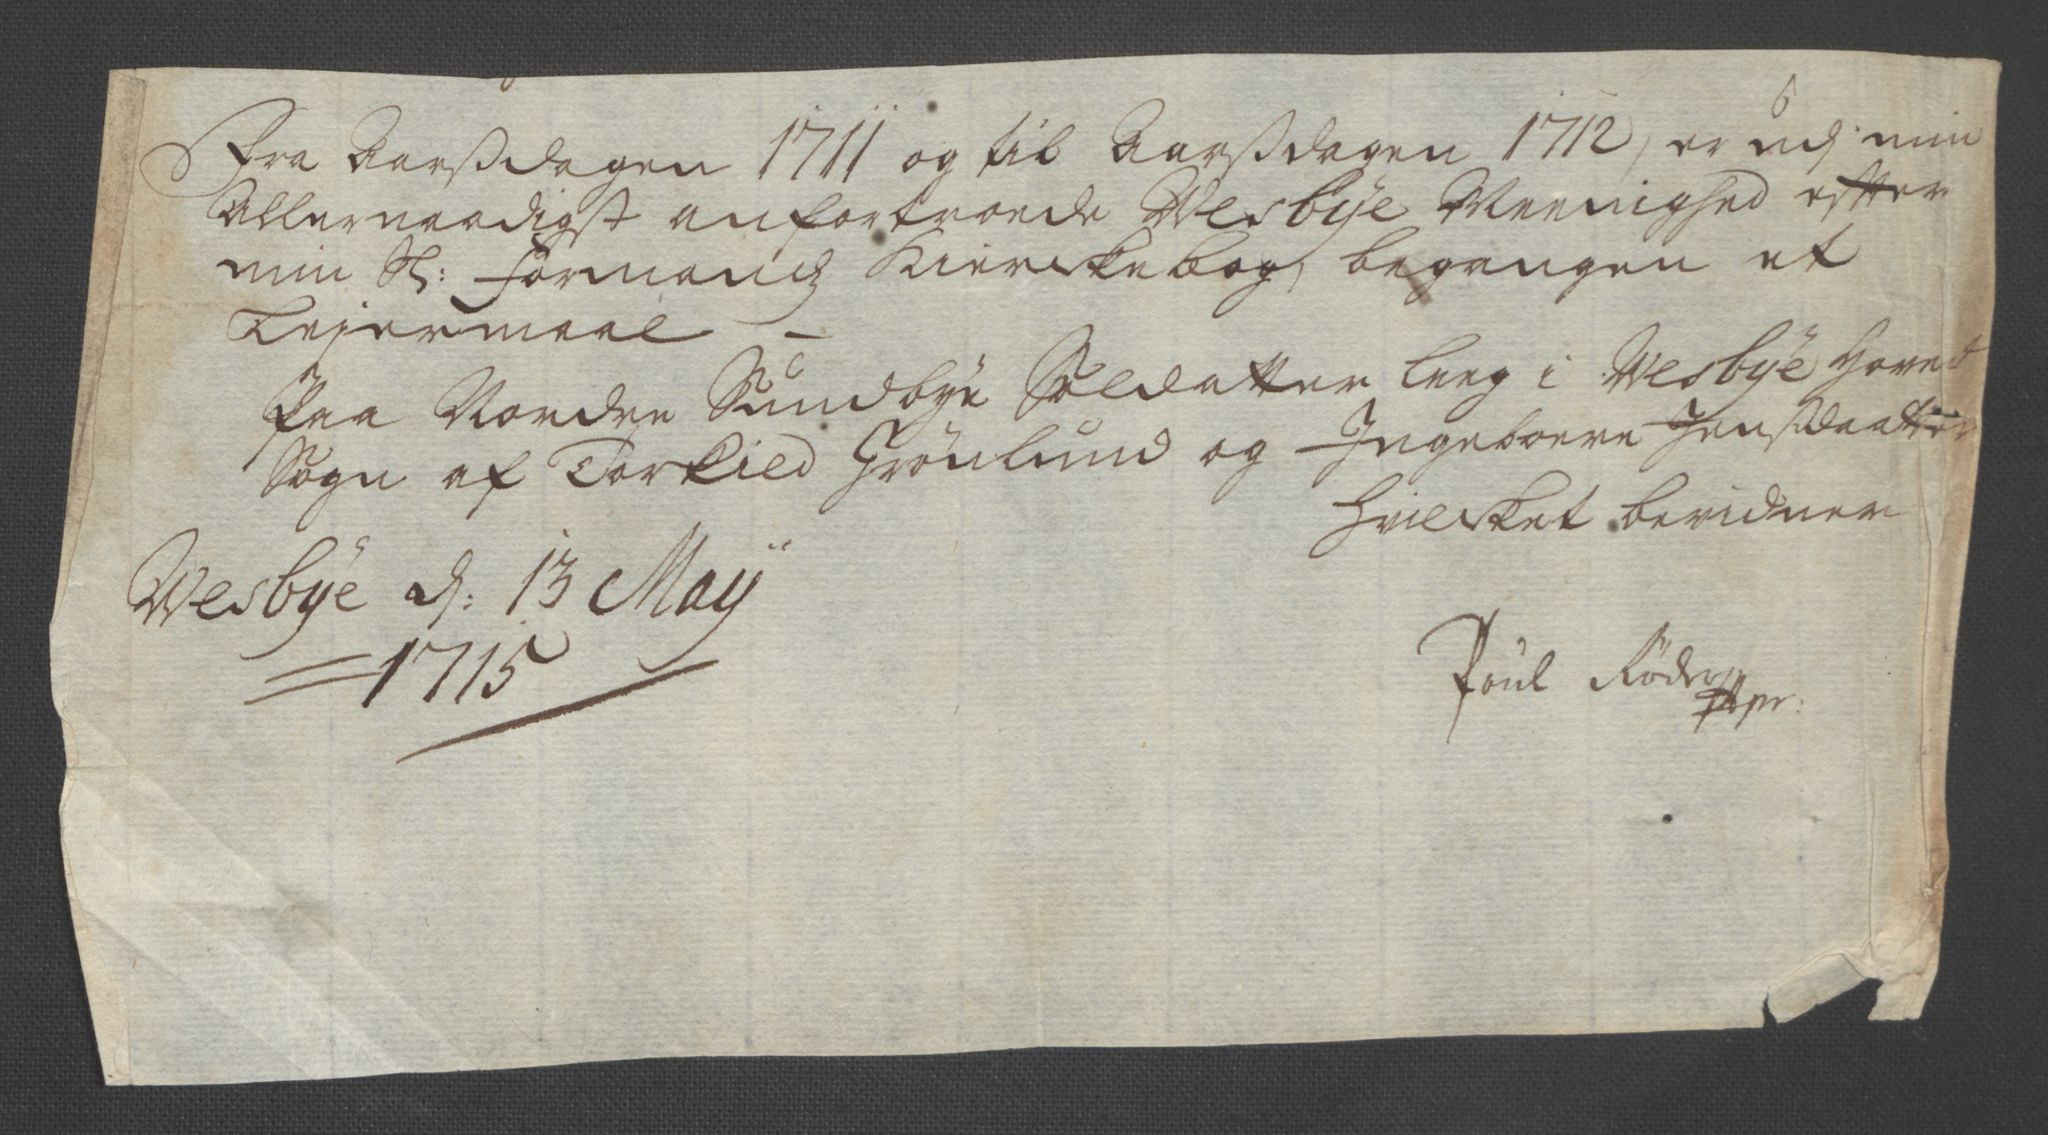 Fra Aarßdagen 1711 og til Aarßdagen 1712, er udj min
Allernaadigst anfortroede Wesbÿe Meenighed effter
min Sl: Formands Kierckebog, begangen et
Leiermaal –
Paa Nordre Sundbÿe Soldatter leeg i Wesbÿe Hoved
Sogn af Torkield Grönlund og Ingeborre Jensdaatter
Hvilcket bevidner
Wesbÿe d: 13 Maÿ
1715
Poul Röder